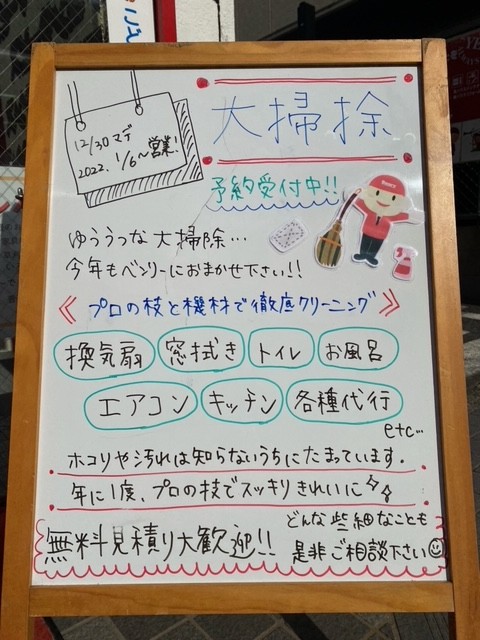 12/30マデ
2022. 1/6～営業!
大掃除
予約受付中!!
ゆううつな大掃除…
今年もベンリーにおまかせ下さい!!
《プロの技と機材で徹底クリーニング》
換気扇 窓拭き トイレ お風呂
エアコン キッチン 各種代行
etc…
ホコリや汚れは知らないうちにたまっています.
年に1度、プロの技でスッキリきれいに
無料見積り大歓迎!!
どんな些細なことも
是非ご相談下さい